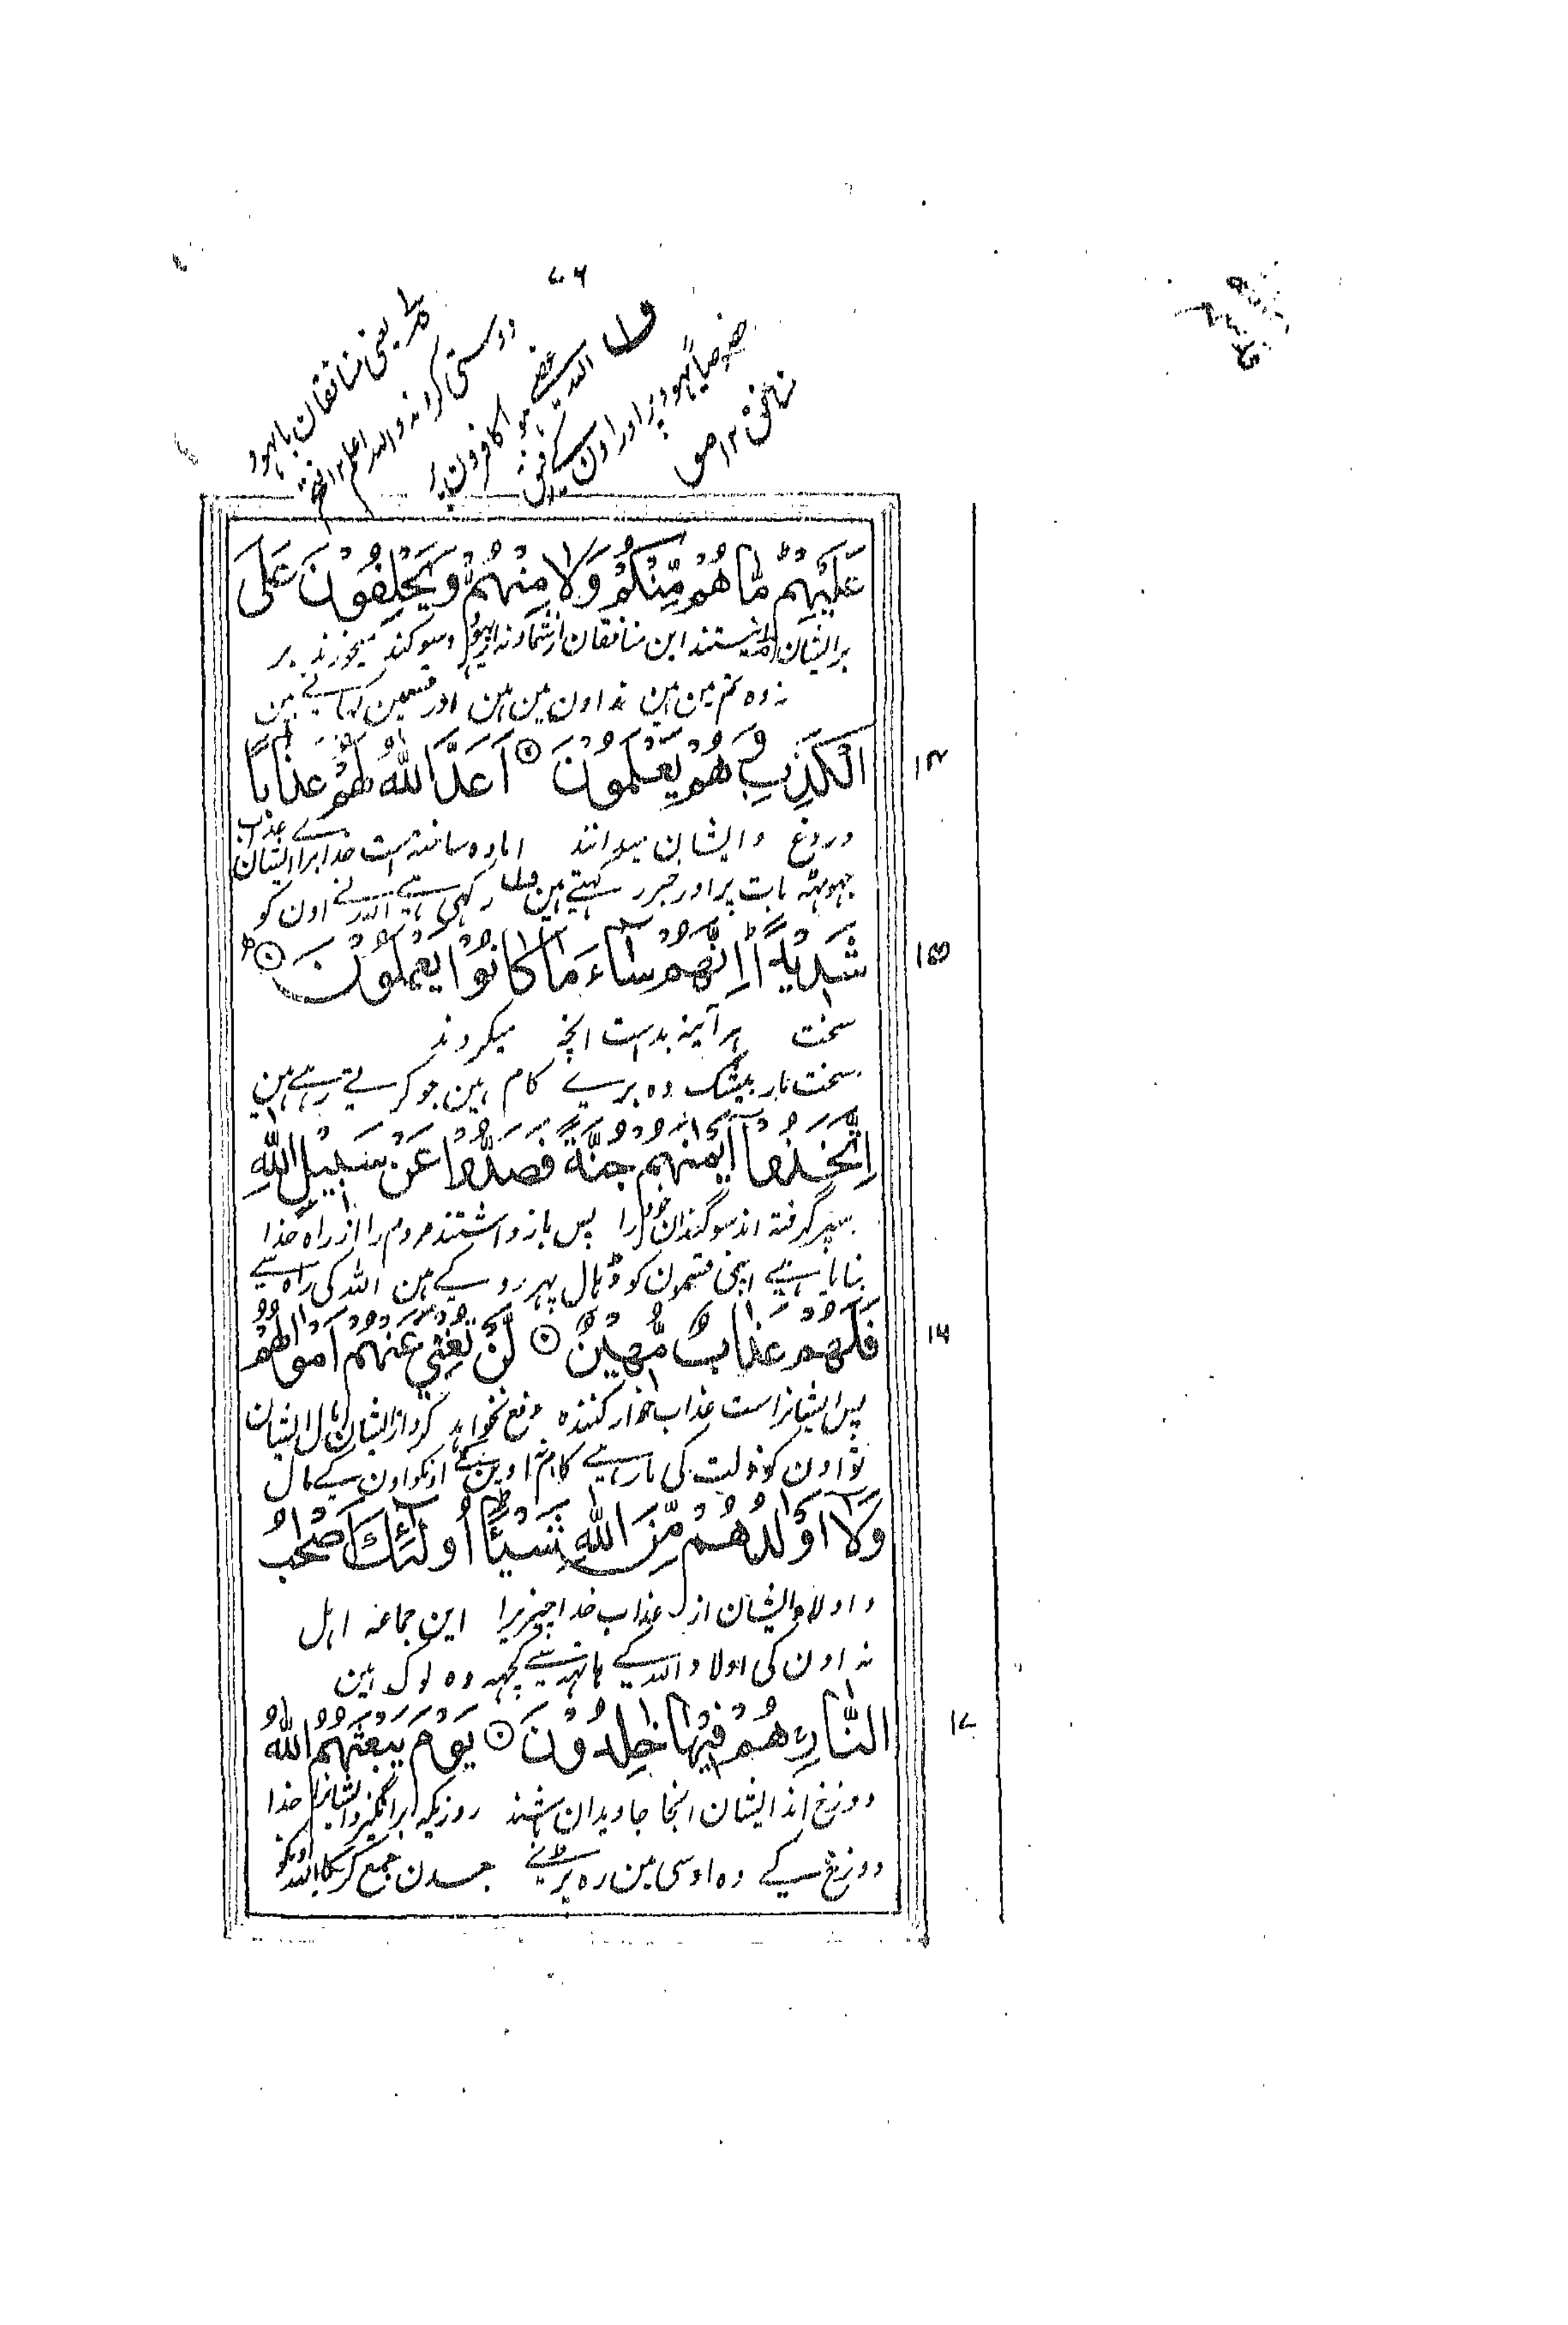 ۷۶
یعنی منافقان با یہود
دوستی کردند واللہ اعلم ۱۲ فتح
ف۱ اللہ غصے ہوا کافروں پر
خصوصاً یہود پر اور اون کے رفیق
منافق ۱۲ مو
عَلَيْهِمْ ؕ مَّا هُمْ مِّنْكُمْ وَلَا مِنْهُمْ وَيَحْلِفُوْنَ عَلَى
بر ایشان نیستند این منافقان از شما و نہ از یہود و سوگند میخورند بر
نہ وہ تم مین ہین نہ اون مین ہین اور قسمین کہاتے ہین
الْكَذِبِ وَهُمْ يَعْلَمُوْنَ ۞ اَعَدَّ اللّٰهُ لَهُمْ عَذَابًا
۱۴
دروغ و ایشان میدانند امادہ ساختہ است خدا برا ایشان عذاب
جہوٹہہ بات پر اور خبر رکہتے ہین ف۱ رکہی ہے اللہ نے اون کو
شَدِيْدًا ؕ اِنَّهُمْ سَآءَ مَا كَانُوْا يَعْمَلُوْنَ ۞
۱۵
سخت ہر آینہ بد است انچہ میکردند
سخت مار بیشک وہ برے کام ہین جو کرتے رہے ہین
اِتَّخَذُوْٓا اَيْمٰنَهُمْ جُنَّةً فَصَدُّوْا عَنْ سَبِيْلِ اللّٰهِ
سپر گرفتہ اند سوگندان خود را پس باز داشتند مردم را از راہ خدا
بنایا ہے اپنی قسمون کو ڈہال پہر روکے ہین اللہ کی راہ سے
فَلَهُمْ عَذَابٌ مُّهِيْنٌ ۞ لَنْ تُغْنِيَ عَنْهُمْ اَمْوَالُهُمْ
۱۶
پس ایشانراست عذاب خوار کنندہ دفع نخواہد کرد از ایشان مال ایشان
تو اون کو ذلت کی مار ہے کام نہ آوینگے اونکو اون کے مال
وَلَآ اَوْلَادُهُمْ مِّنَ اللّٰهِ شَيْـًٔا ؕ اُولٰٓئِكَ اَصْحٰبُ
و اولاد ایشان از عذاب خدا چیزیرا این جماعہ اہل
نہ اون کی اولاد اللہ کے ہاتہہ سے کچہہ وہ لوک ہین
النَّارِ هُمْ فِيْهَا خٰلِدُوْنَ ۞ يَوْمَ يَبْعَثُهُمُ اللّٰهُ
۱۷
دوزخ اند ایشان انجا جاویدان باشند روزیکہ برانگیزد ایشانرا خدا
دوزخ کے وہ اوسی مین رہ پڑے جسدن جمع کریگا اللہ اونکو